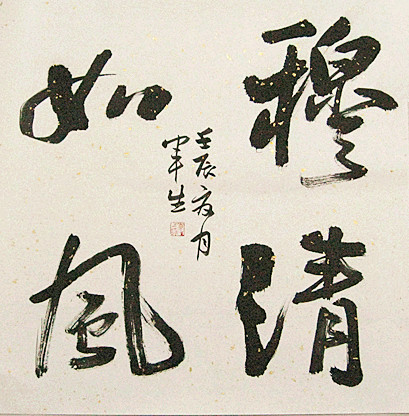 穆如
清風
壬辰夏月
军生